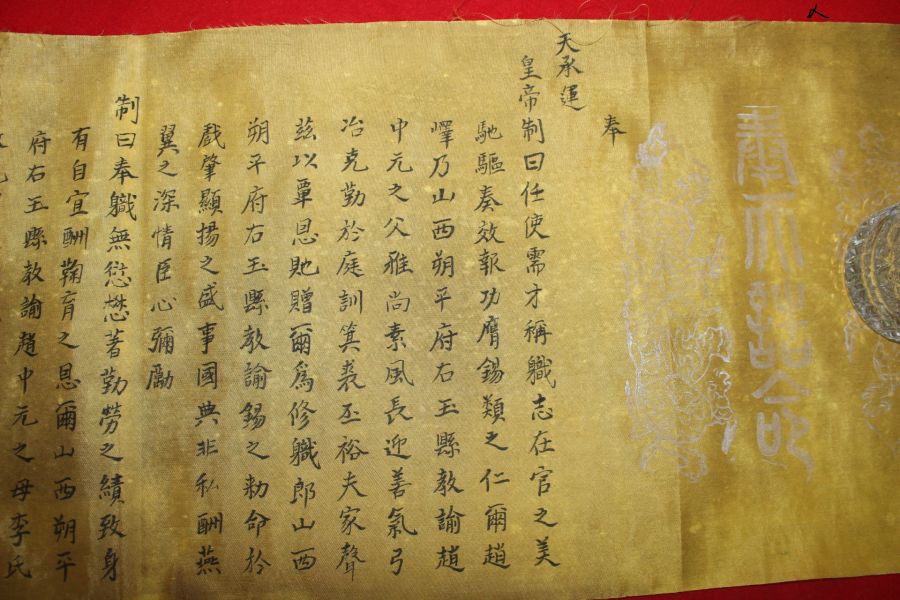 奉天誥命
奉
天承運
皇帝制曰任使需才稱職志在官之美
馳驅奏效報功膺錫類之仁爾趙
嶧乃山西朔平府右玉縣教諭趙
中元之父雅尚素風長迎善氣弓
冶克勤於庭訓箕裘丕裕夫家聲
茲以覃恩貤贈爾為修職郎山西
朔平府右玉縣教諭錫之勅命於
戲肇顯揚之盛事國典非私酬燕
翼之深情臣心彌勵
制曰奉職無愆懋著勤勞之績致身
有自宜酬鞠育之恩爾山西朔平
府右玉縣教諭趙中元之母李氏